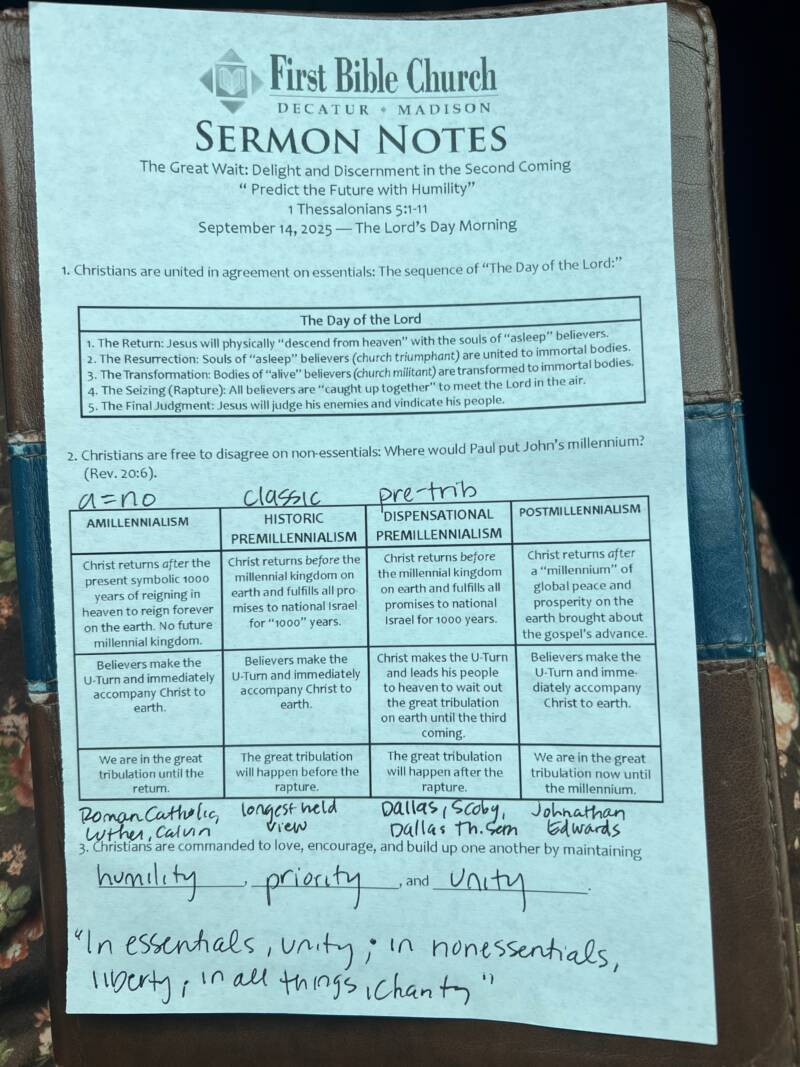 First Bible Church
DECATUR • MADISON
SERMON NOTES
The Great Wait: Delight and Discernment in the Second Coming
“ Predict the Future with Humility”
1 Thessalonians 5:1-11
September 14, 2025 — The Lord’s Day Morning
1. Christians are united in agreement on essentials: The sequence of “The Day of the Lord:”
The Day of the Lord
1. The Return: Jesus will physically “descend from heaven” with the souls of “asleep” believers.
2. The Resurrection: Souls of “asleep” believers (church triumphant) are united to immortal bodies.
3. The Transformation: Bodies of “alive” believers (church militant) are transformed to immortal bodies.
4. The Seizing (Rapture): All believers are “caught up together” to meet the Lord in the air.
5. The Final Judgment: Jesus will judge his enemies and vindicate his people.
2. Christians are free to disagree on non-essentials: Where would Paul put John’s millennium?
(Rev. 20:6).
a=no
classic
pre-trib
AMILLENNIALISM
HISTORIC
PREMILLENNIALISM
DISPENSATIONAL
PREMILLENNIALISM
POSTMILLENNIALISM
Christ returns after the
present symbolic 1000
years of reigning in
heaven to reign forever
on the earth. No future
millennial kingdom.
Christ returns before the
millennial kingdom on
earth and fulfills all pro
mises to national Israel
for “1000” years.
Christ returns before
the millennial kingdom
on earth and fulfills all
promises to national
Israel for 1000 years.
Christ returns after
a “millennium” of
global peace and
prosperity on the
earth brought about
the gospel’s advance.
Believers make the
U-Turn and immediately
accompany Christ to
earth.
Believers make the
U-Turn and immediately
accompany Christ to
earth.
Christ makes the U-Turn
and leads his people
to heaven to wait out
the great tribulation
on earth until the third
coming.
Believers make the
U-Turn and imme-
diately accompany
Christ to earth.
We are in the great
tribulation until the
return.
The great tribulation
will happen before the
rapture.
The great tribulation
will happen after the
rapture.
We are in the great
tribulation now until
the millennium.
Roman Catholic,
Luther, Calvin
longest held
view
Dallas, Scoby,
Dallas Th. Sem
Johnathan
Edwards
3. Christians are commanded to love, encourage, and build up one another by maintaining
humility, priority, and unity.
“In essentials, unity; in nonessentials,
liberty; in all things, charity”